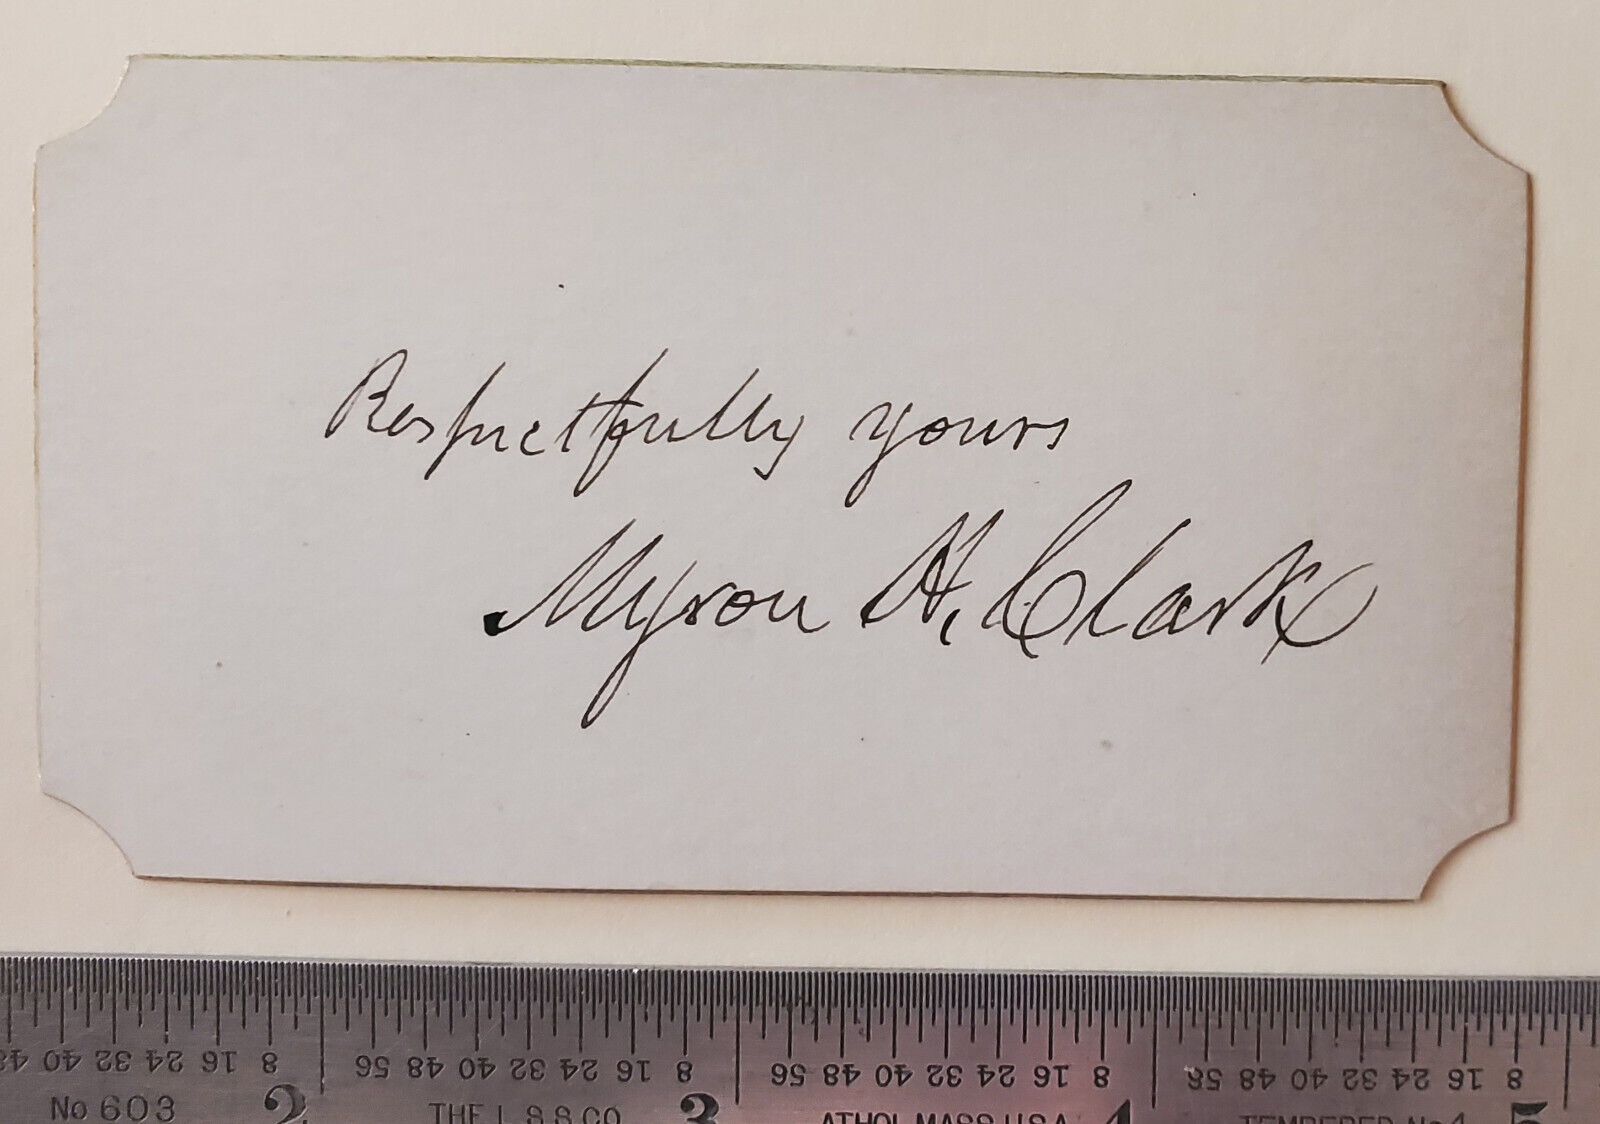 Respectfully yours
Myron H. Clark
48 40 32 24 16 8 56 48 40 32 24 16 8 56 48 40 32 24 16 8 56 48 40 32 24 16 8
No 603 2 THE L.S.S.CO 3 ATHOL MASS USA 4 TEMPERED No 4 5